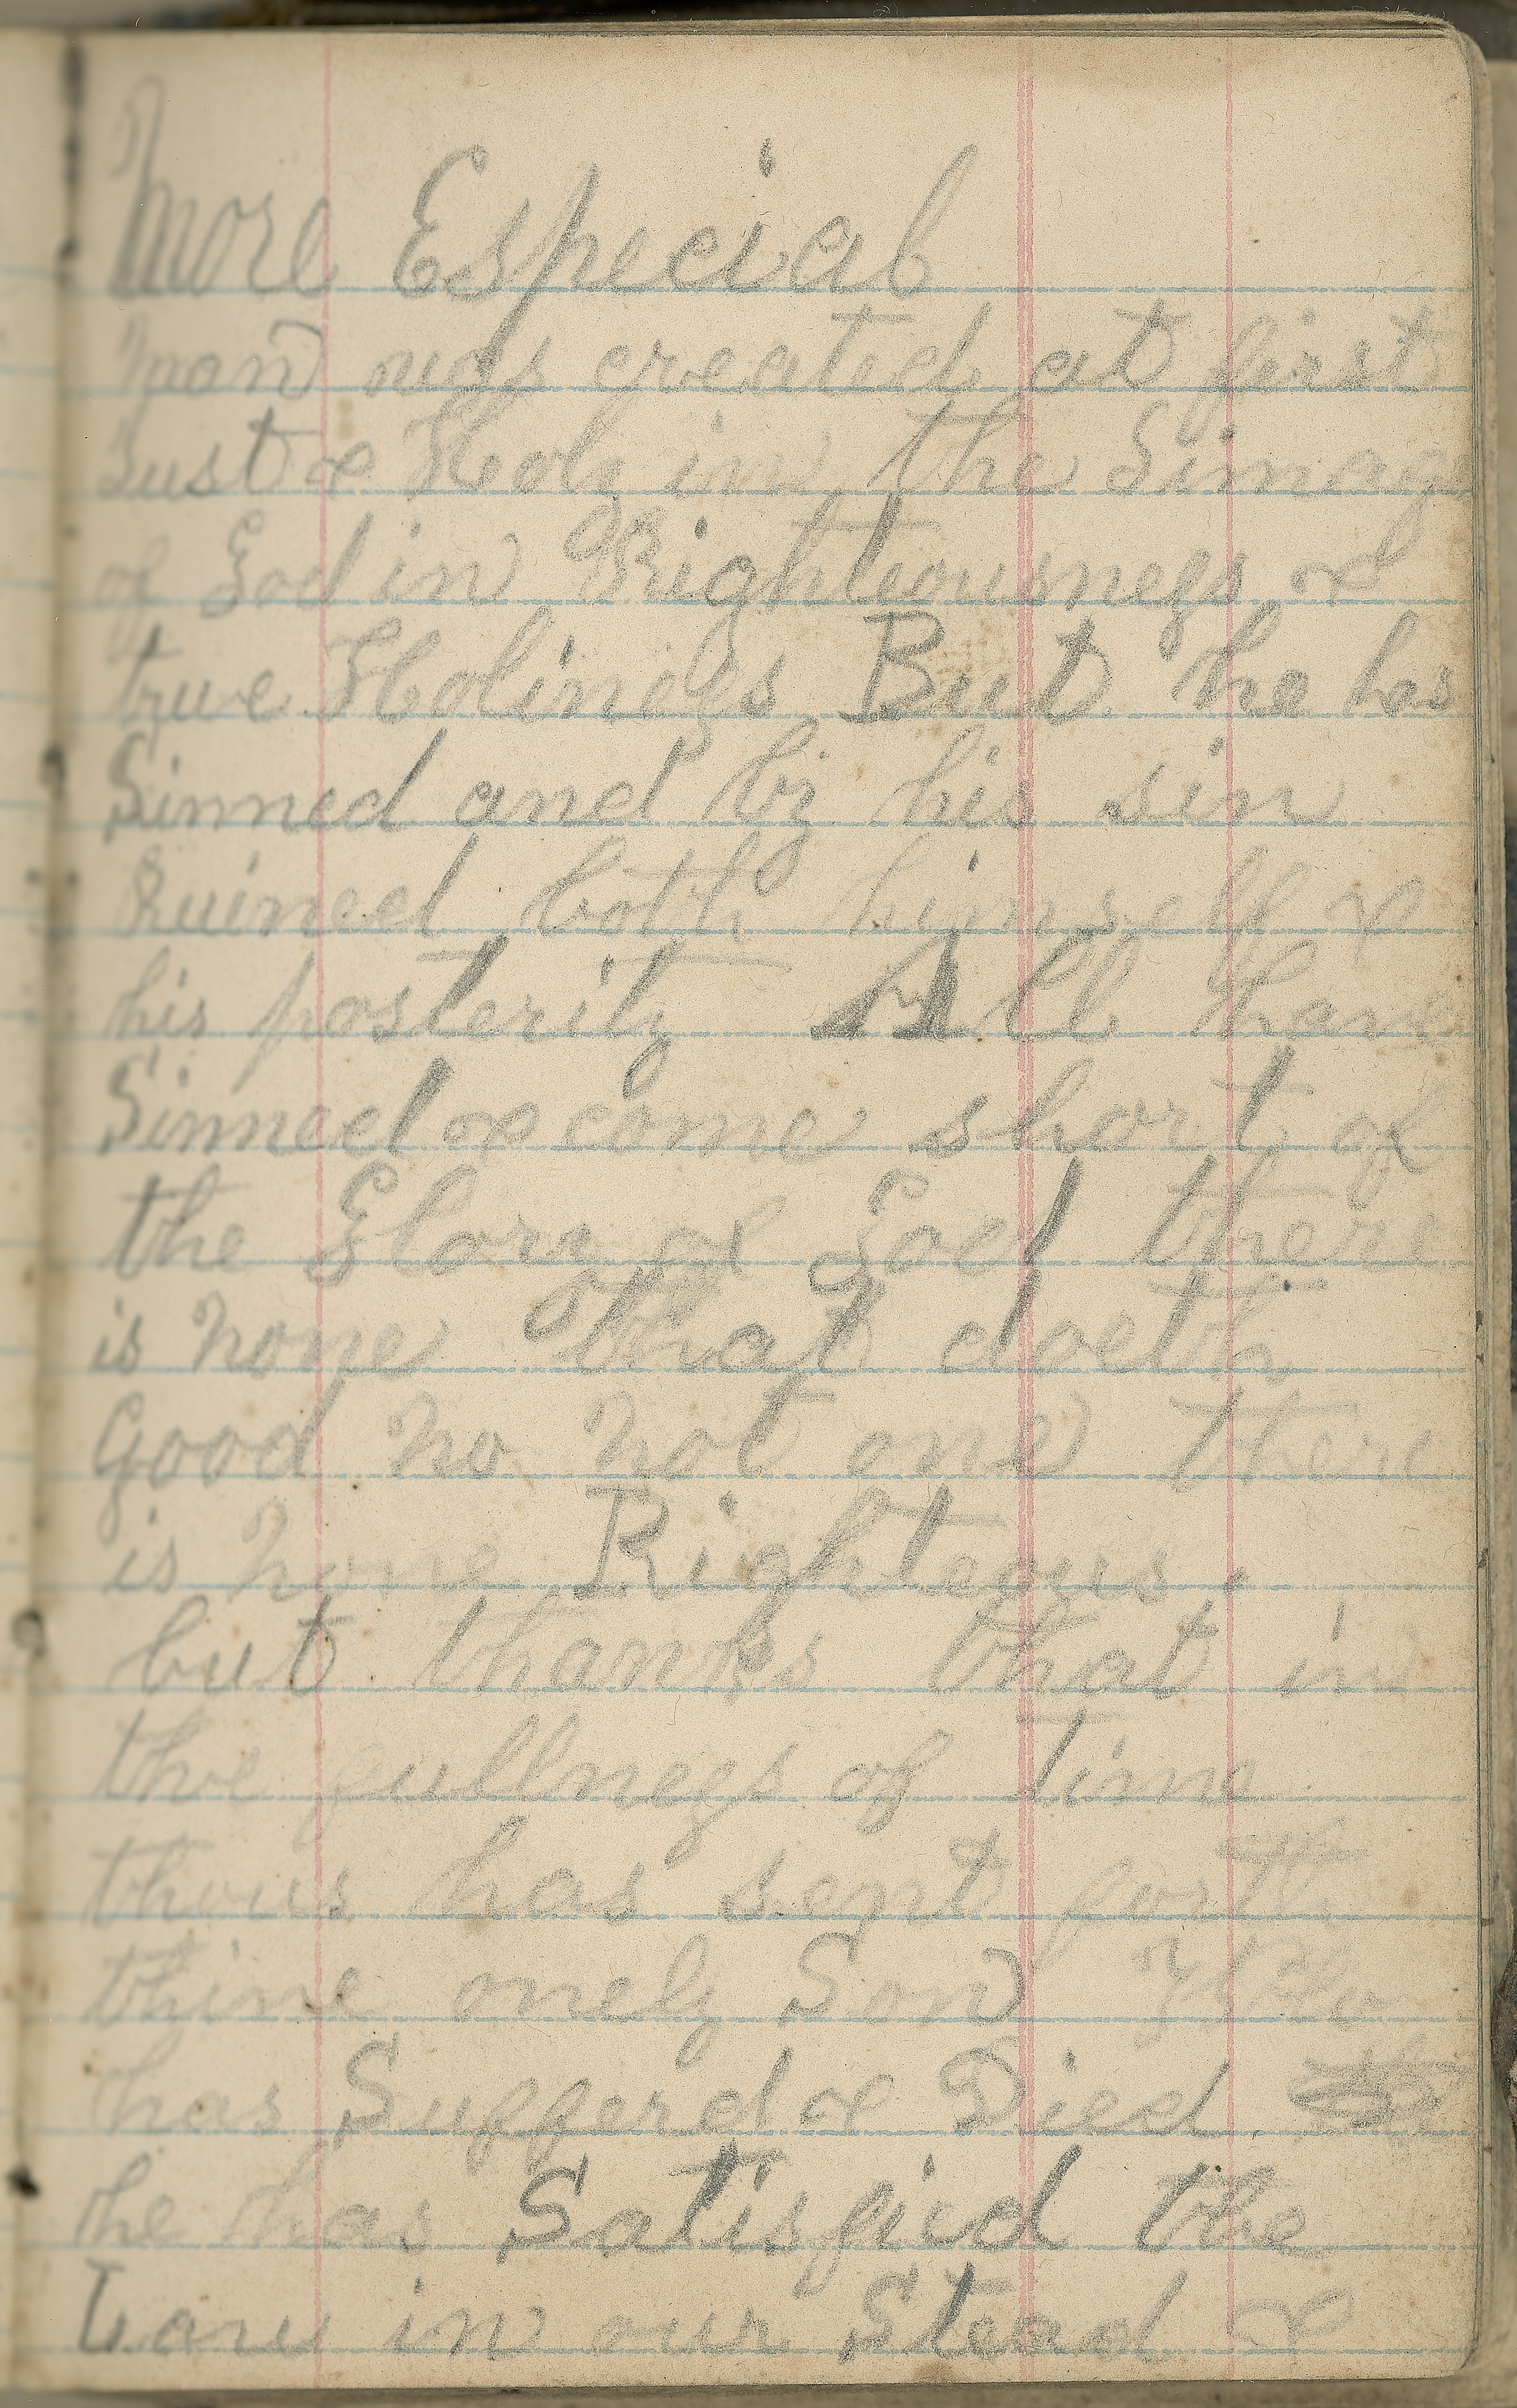 More Especial
man was created at first
Just & Holy in the Image
of God in Righteousness &
true Holiness But he has
Sinned and by his sin
Ruined both himself &
his posterity All have
Sinned & come short of
the Glory of God there
is none that doeth
Good no not one there
is none Righteous.
but thanks that in
the fullness of time
thous has sent forth
thine onely Son Who
has Sufferd & Died
he has Satisfied the
Law in our Stead &